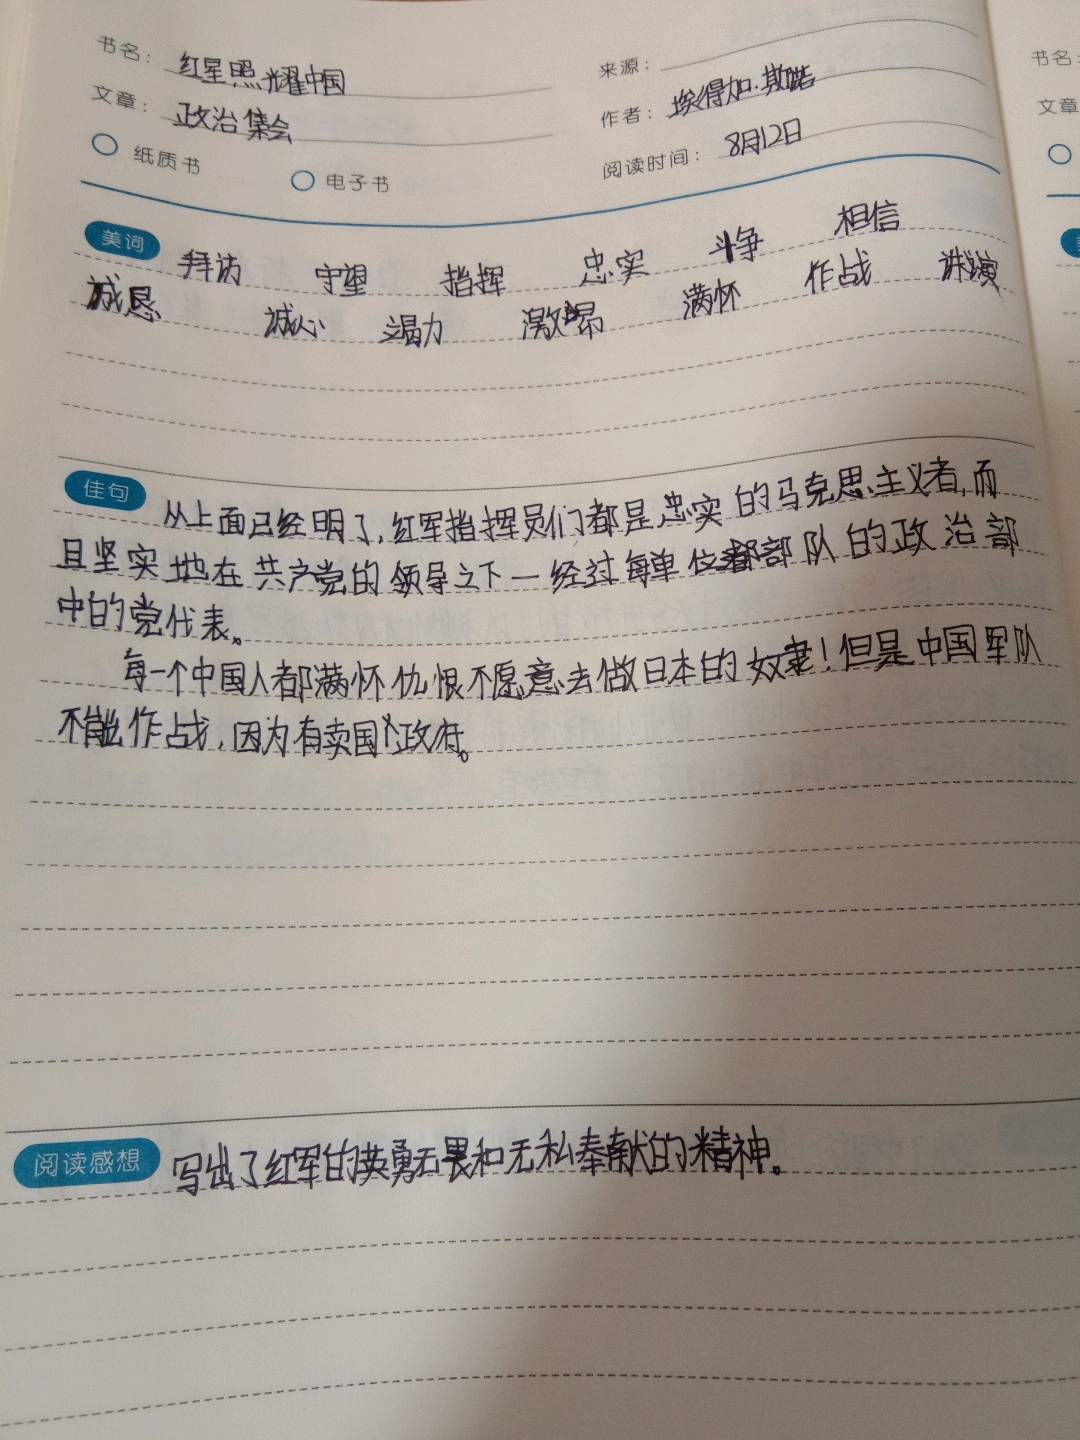 书名：红星照耀中国
来源：
书名：
文章：政治集会
作者：埃得加·斯诺
文章
纸质书
电子书
阅读时间：8月12日
美词 拜访 守望 指挥 忠实 斗争 相信
诚恳 诚心 竭力 激昂 满怀 作战 讲演
佳句 从上面已经明了,红军指挥员们都是忠实的马克思主义者,而
且坚实地在共产党的领导之下—经过每单位部队的政治部
中的党代表。
每一个中国人都满怀仇恨不愿意去做日本的奴隶!但是中国军队
不能作战,因为有卖国政府。
阅读感想 写出了红军的英勇无畏和无私奉献的精神。